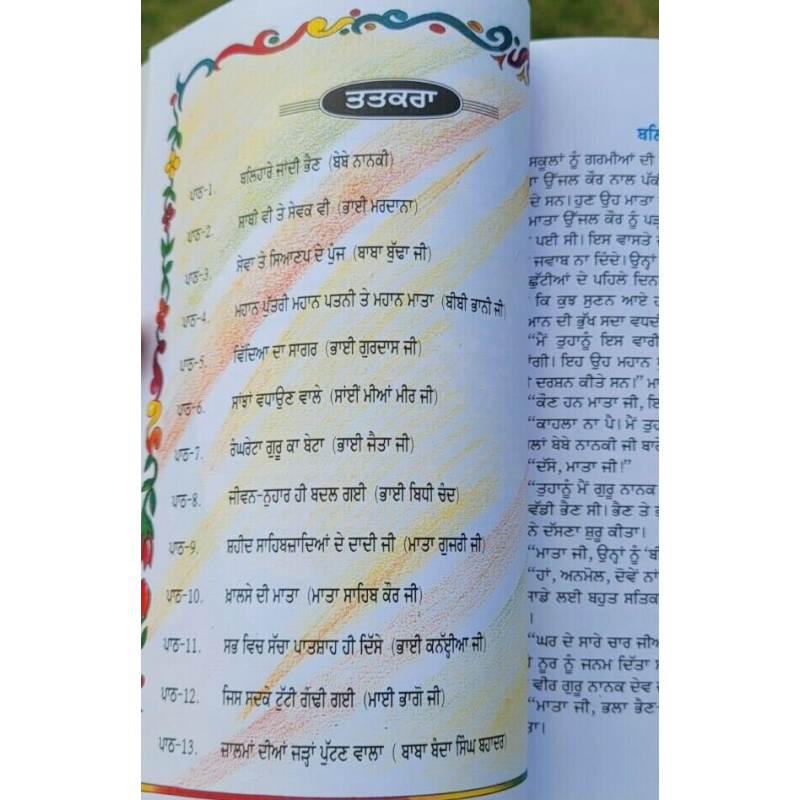 ਤਤਕਰਾ
ਪਾਠ-1. ਬਲਿਹਾਰੇ ਜਾਂਦੀ ਭੈਣ (ਬੇਬੇ ਨਾਨਕੀ)
ਪਾਠ-2. ਸਾਥੀ ਵੀ ਤੇ ਸੇਵਕ ਵੀ (ਭਾਈ ਮਰਦਾਨਾ)
ਪਾਠ-3. ਸੇਵਾ ਤੇ ਸਿਆਣਪ ਦੇ ਪੁੰਜ (ਬਾਬਾ ਬੁੱਢਾ ਜੀ)
ਪਾਠ-4. ਮਹਾਨ ਪੁੱਤਰੀ ਮਹਾਨ ਪਤਨੀ ਤੇ ਮਹਾਨ ਮਾਤਾ (ਬੀਬੀ ਭਾਨੀ ਜੀ)
ਪਾਠ-5. ਵਿੱਦਿਆ ਦਾ ਸਾਗਰ (ਭਾਈ ਗੁਰਦਾਸ ਜੀ)
ਪਾਠ-6. ਸਾਂਝਾਂ ਵਧਾਉਣ ਵਾਲੇ (ਸਾਂਈਂ ਮੀਆਂ ਮੀਰ ਜੀ)
ਪਾਠ-7. ਰੰਘਰੇਟਾ ਗੁਰੂ ਕਾ ਬੇਟਾ (ਭਾਈ ਜੈਤਾ ਜੀ)
ਪਾਠ-8. ਜੀਵਨ-ਨੁਹਾਰ ਹੀ ਬਦਲ ਗਈ (ਭਾਈ ਬਿਧੀ ਚੰਦ)
ਪਾਠ-9. ਸ਼ਹੀਦ ਸਾਹਿਬਜ਼ਾਦਿਆਂ ਦੇ ਦਾਦੀ ਜੀ (ਮਾਤਾ ਗੁਜਰੀ ਜੀ)
ਪਾਠ-10. ਖ਼ਾਲਸੇ ਦੀ ਮਾਤਾ (ਮਾਤਾ ਸਾਹਿਬ ਕੌਰ ਜੀ)
ਪਾਠ-11. ਸਭ ਵਿਚ ਸੱਚਾ ਪਾਤਸ਼ਾਹ ਹੀ ਦਿੱਸੇ (ਭਾਈ ਕਨਈਆ ਜੀ)
ਪਾਠ-12. ਜਿਸ ਸਦਕੇ ਟੁੱਟੀ ਗੰਢੀ ਗਈ (ਮਾਈ ਭਾਗੋ ਜੀ)
ਪਾਠ-13. ਜ਼ਾਲਮਾਂ ਦੀਆਂ ਜੜ੍ਹਾਂ ਪੁੱਟਣ ਵਾਲਾ ( ਬਾਬਾ ਬੰਦਾ ਸਿੰਘ ਬਹਾਦਰ)
ਸਕੂਲਾਂ ਨੂੰ ਗਰਮੀਆਂ ਦੀ
ਉੱਜਲ ਕੌਰ ਨਾਲ
ਦੇ ਸਨ। ਹੁਣ ਉਹ ਮਾਤਾ
ਮਾਤਾ ਉੱਜਲ ਕੌਰ ਨੂੰ
ਪਈ ਸੀ। ਇਸ ਵਾਸਤੇ
ਜਵਾਬ ਨਾ ਦਿੰਦੇ। ਉਨ੍ਹਾਂ
ਛੁੱਟੀਆਂ ਦੇ ਪਹਿਲੇ ਦਿਨ
ਕਿ ਕੁਝ ਸੁਣਨ ਆਏ
ਦੀ ਭੁੱਖ ਸਦਾ
“ਮੈਂ ਤੁਹਾਨੂੰ ਇਸ ਵਾਰੀ
ਇਹ ਉਹ ਮਹਾਨ
ਦਰਸ਼ਨ ਕੀਤੇ ਸਨ।”
“ਕੌਣ ਹਨ ਮਾਤਾ ਜੀ,
“ਕਾਹਲਾ ਨਾ ਪੈ। ਮੈਂ
ਬੇਬੇ ਨਾਨਕੀ ਜੀ ਬਾਰੇ
“ਦੱਸੋ, ਮਾਤਾ ਜੀ!”
“ਤੁਹਾਨੂੰ ਮੈਂ ਗੁਰੂ ਨਾਨਕ
ਵੱਡੀ ਭੈਣ ਸੀ। ਭੈਣ ਤੇ
ਨੇ ਦੱਸਣਾ ਸ਼ੁਰੂ ਕੀਤਾ।
“ਮਾਤਾ ਜੀ, ਉਨ੍ਹਾਂ ਨੂੰ
“ਹਾਂ, ਅਨਮੋਲ, ਦੋਵੇਂ ਨਾਂ
ਲਈ ਬਹੁਤ
“ਘਰ ਦੇ ਸਾਰੇ ਚਾਰ
ਨੂਰ ਨੂੰ ਜਨਮ ਦਿੱਤਾ
ਵੀਰ ਗੁਰੂ ਨਾਨਕ ਦੇਵ
“ਮਾਤਾ ਜੀ, ਭਲਾ ਭੈਣ-